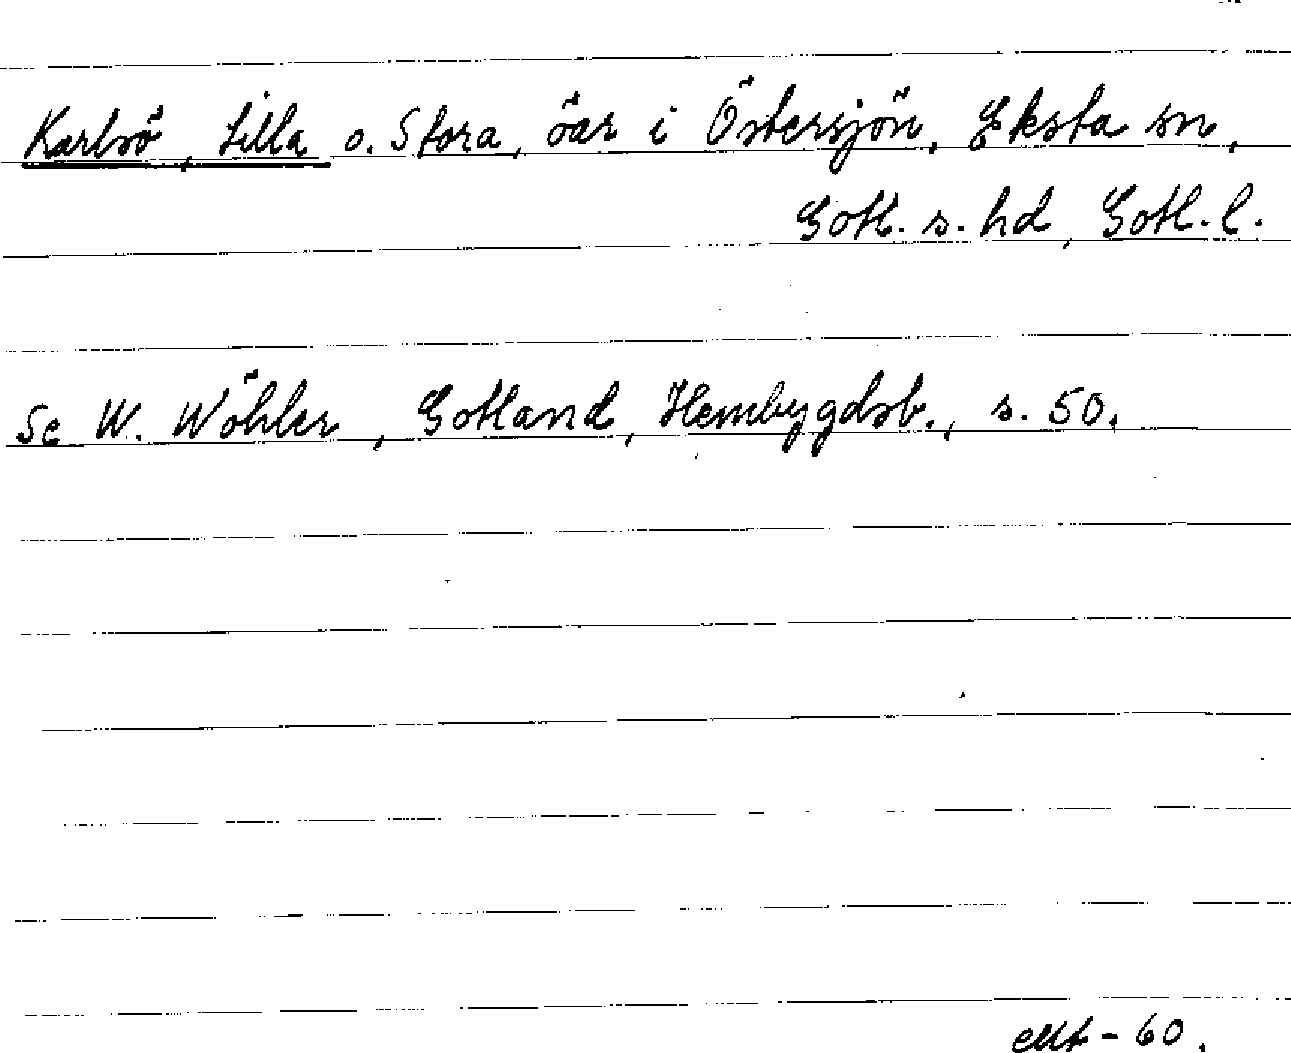 Karlsö, Lilla o. Stora, öar i Östersjön, Eksta sn,
Gotl. s. hd, Gotl. l.
Se W. Wöhler, Gotland, Hembygdsb., s. 50.
-60.